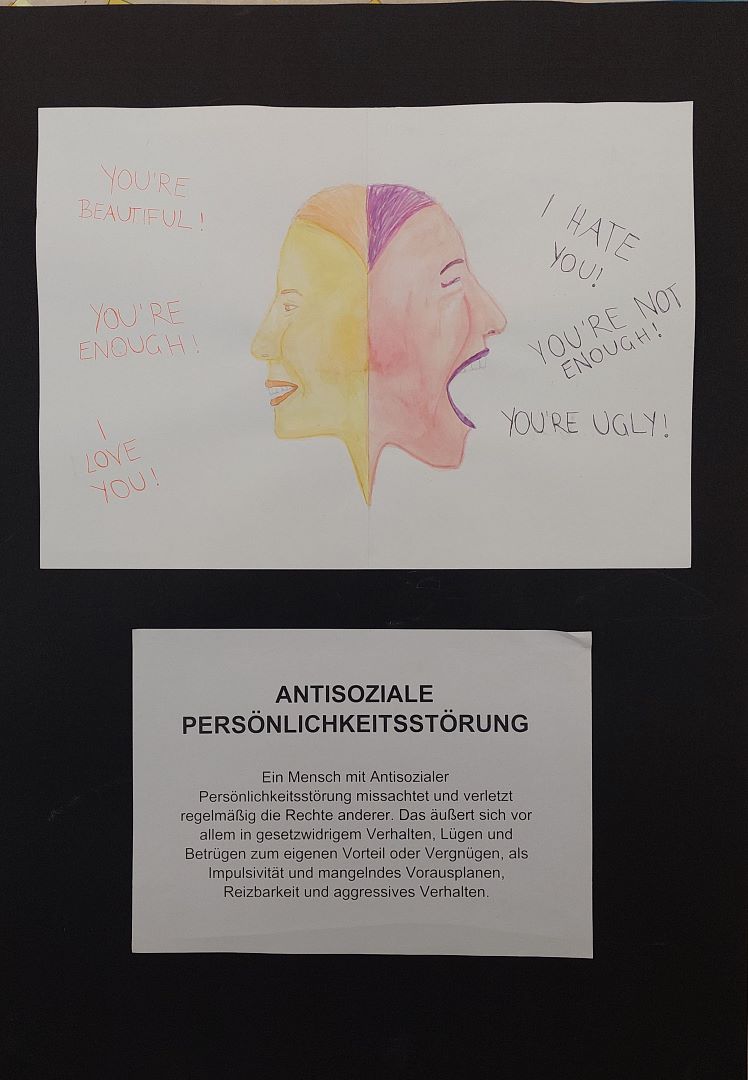 YOU'RE
BEAUTIFUL!
YOU'RE
ENOUGH!
I
LOVE
YOU!
I HATE
YOU!
YOU'RE NOT
ENOUGH!
YOU'RE UGLY!
ANTISOZIALE
PERSÖNLICHKEITSSTÖRUNG
Ein Mensch mit Antisozialer
Persönlichkeitsstörung missachtet und verletzt
regelmäßig die Rechte anderer. Das äußert sich vor
allem in gesetzwidrigem Verhalten, Lügen und
Betrügen zum eigenen Vorteil oder Vergnügen, als
Impulsivität und mangelndes Vorausplanen,
Reizbarkeit und aggressives Verhalten.